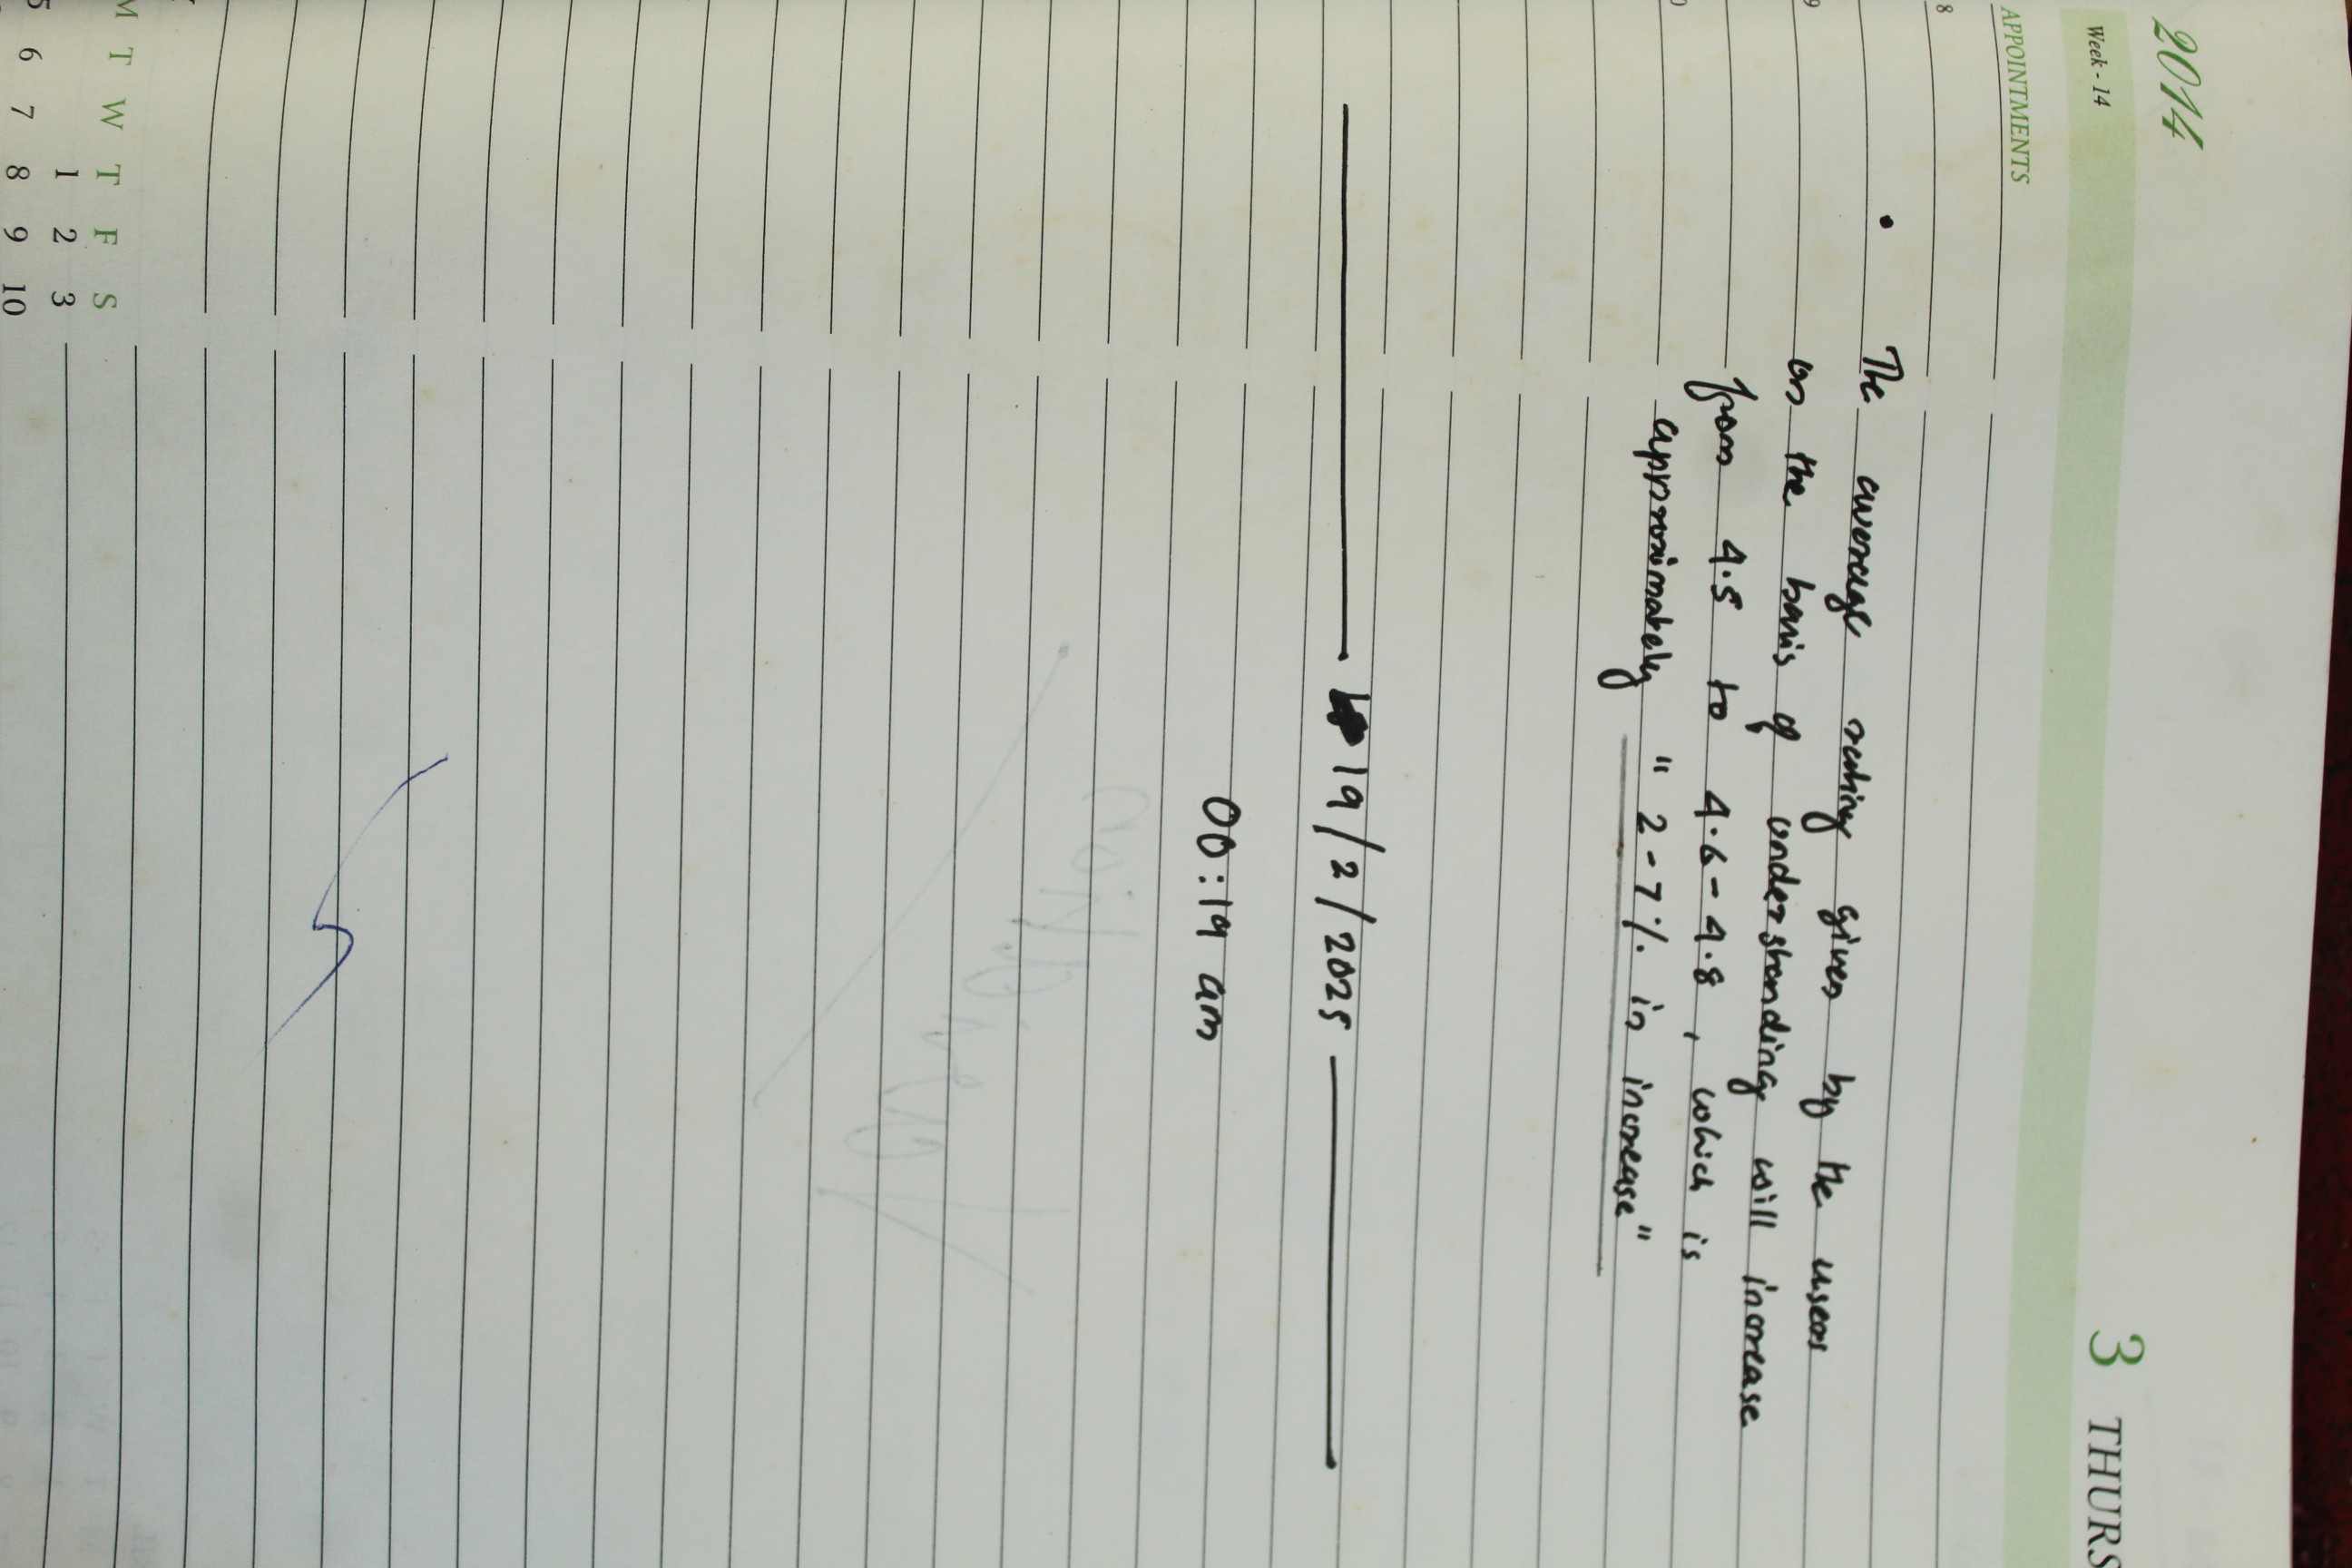 2014
Week - 14
3 THURS
APPOINTMENTS
8
9
• The average rating given by the users
on the basis of understanding will increase
from 4.5 to 4.6 - 4.8, which is
approximately " 2 - 7 % in increase"
19/2/2025
00:19 am
Variation
M T W T F S
1 2 3
5 6 7 8 9 10